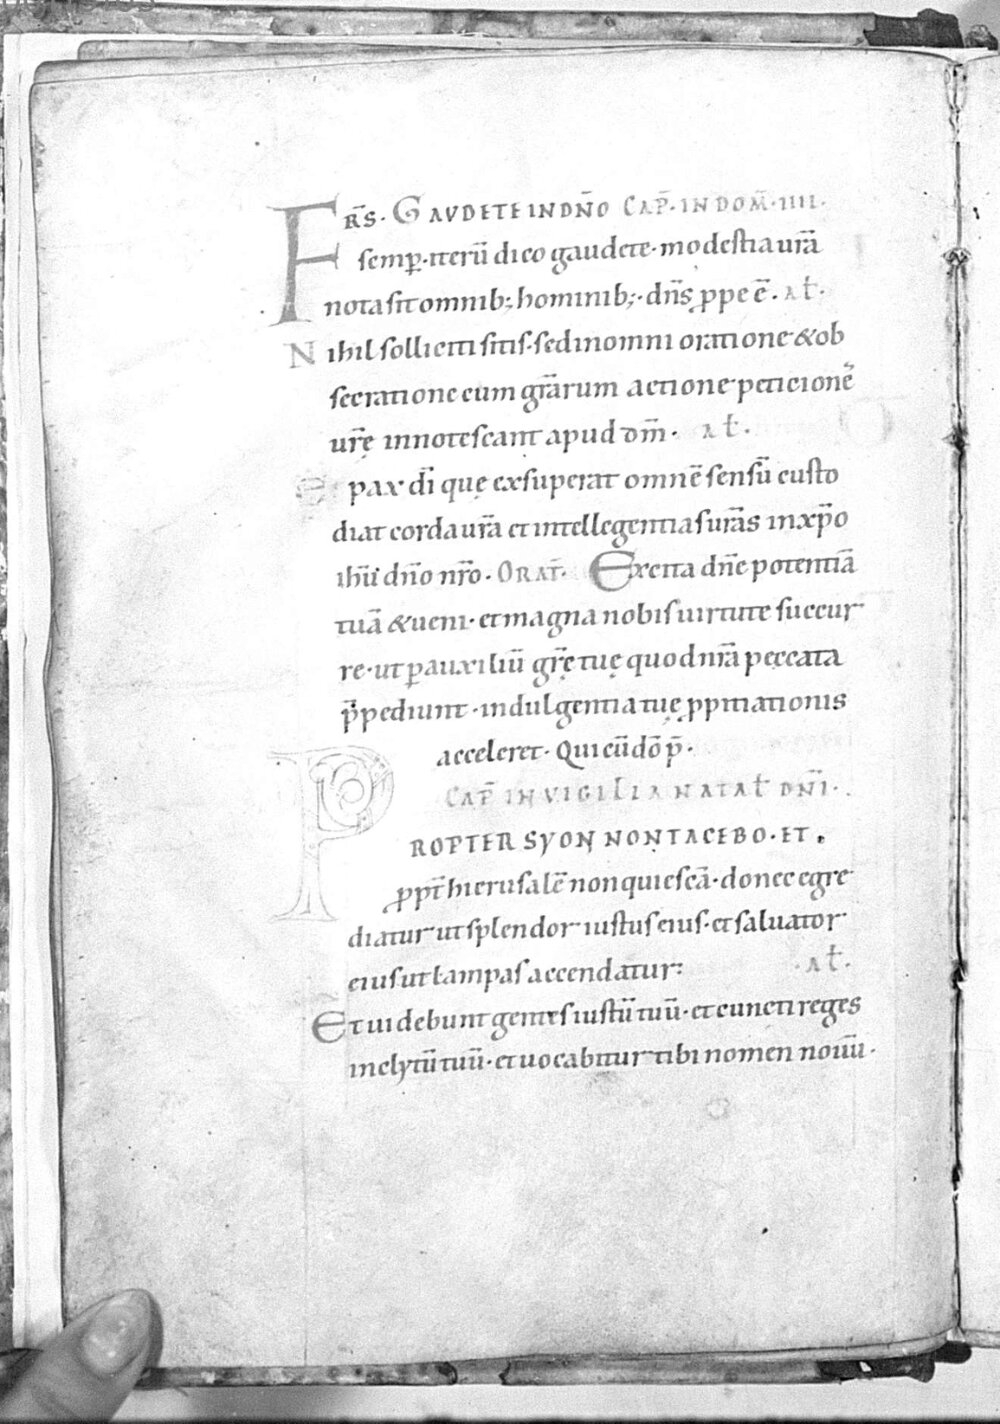 FR̄S· GAVDETE IN DN̄O CAP̄· IN DOM̄· IIII·
semp̲· iterū dico gaudete· modestia ur̄a
nota sit omnib; hominib;· dn̄s prope ē· AƗ·
Nihil solliciti sitis· sed in omni oratione & ob
secratione cum gr̄arum actione peticionē
ur̄ę innotescant apud dm̄· AƗ·
Et pax dī quę exsuperat omnē sensū custo
diat corda ur̄a et intellegentias ur̄as in xp̄o
ihū dn̄o nr̄o· ORAT̄· Excita dn̄e potentiā
tuā & ueni· et magna nobis uirtute succur
re· ut p̲ auxiliū gr̄ę tuę quod nr̄a peccata
p̄pediunt· indulgentia tuę ppitiationis
acceleret· Qui cū dō p̄·
CAP̄ IN VIGILIA NATAƗ DN̄I·
PROPTER SYON NON TACEBO· ET·
ppt̄ hierusalē non quiescā· donec egre
diatur ut splendor iustus eius· et saluator
eius ut lampas accendatur: ·AƗ·
Et uidebunt gentes iustū tuū· et cuncti reges
inclytū tuū· et uocabitur tibi nomen nouū·